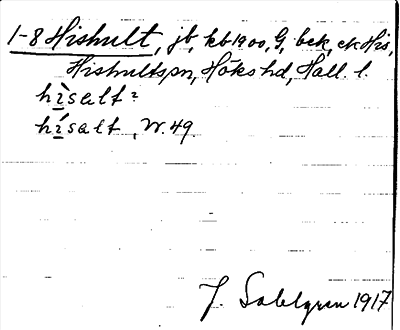 1-8 Hishult, jb, kb 1900, G, bek, ek His,
Hishults sn, Höks hd, Hall. l.
hìsalt²
hísalt, W. 49.
J. Sahlgren 1917